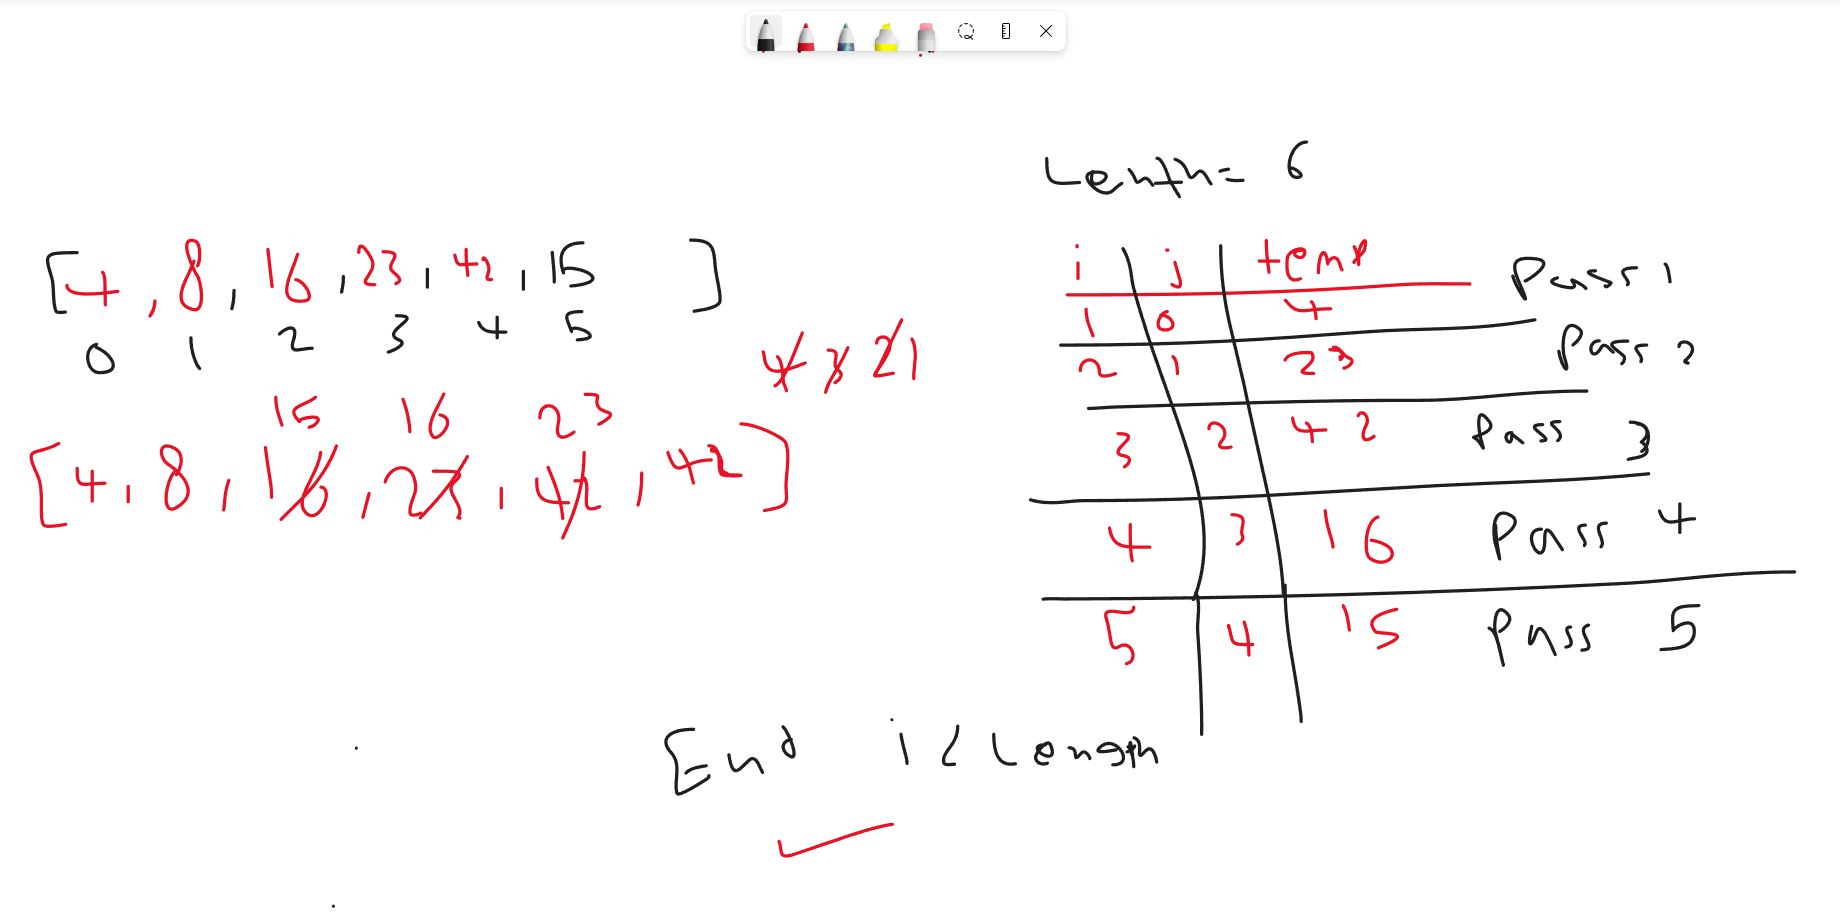 Lenth= 6
[4, 8, 16, 23, 42, 15 ]
0 1 2 3 4 5
4 3 2 1
15 16 23
[4, 8, 16, 23, 42, 42]
i j temp Pass 1
1 0 4
Pass 2
2 1 23
3 2 42 Pass 3
4 3 16 Pass 4
5 4 15 Pass 5
End i < Length